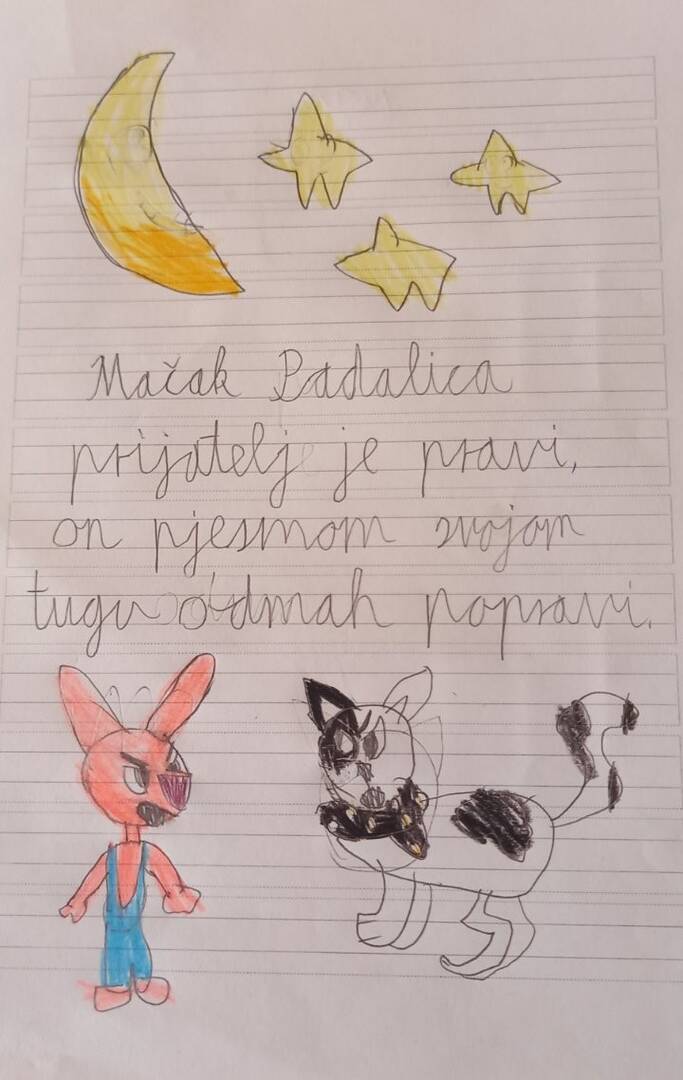 Mačak Padalica
prijatelj je pravi,
on pjesmom svojom
tugu odmah popravi.